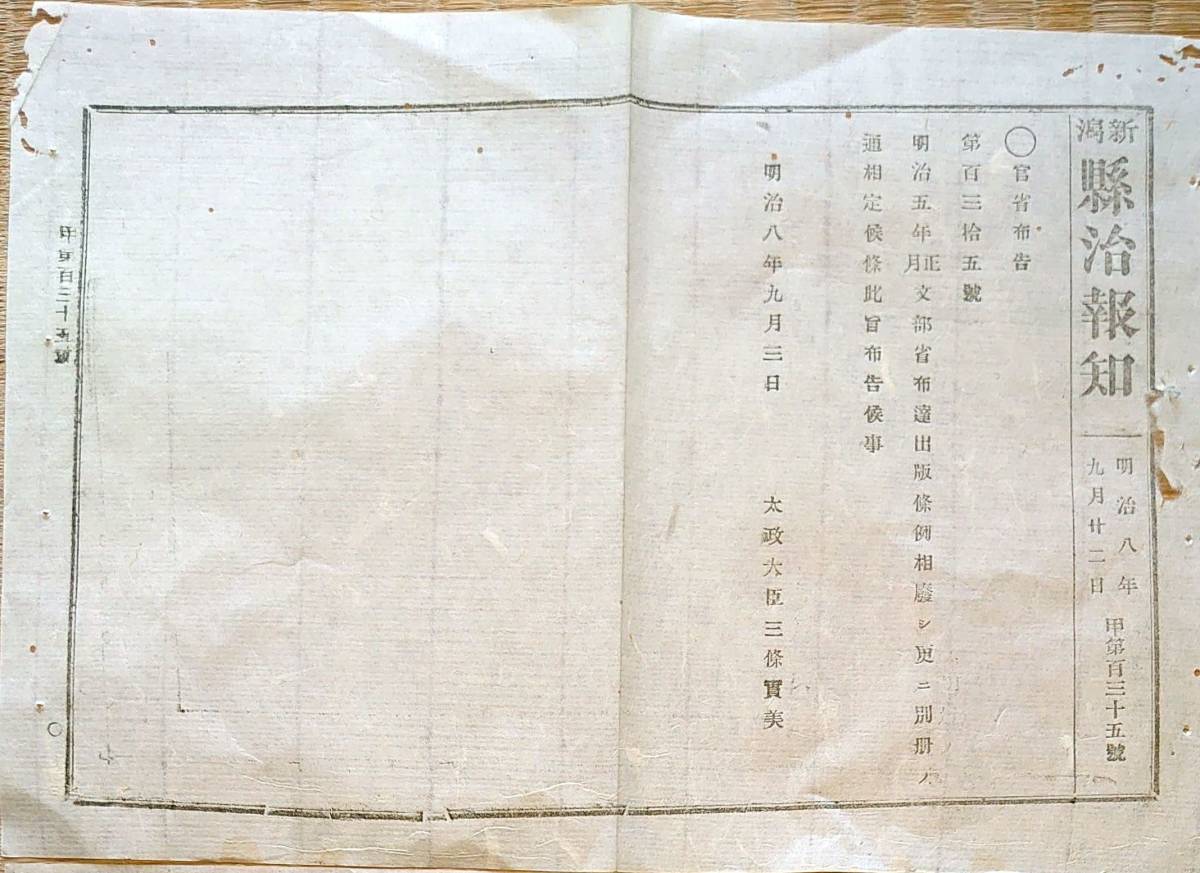 新潟
縣治報知
明治八年
九月廿二日
甲第百三十五號
◯官省布告
第百三拾五號
明治五年正月文部省布達出版條例相廢シ更ニ別册ノ
通相定候條此旨布告候事
明治八年九月三日
太政大臣三條實美
甲第百三十五號